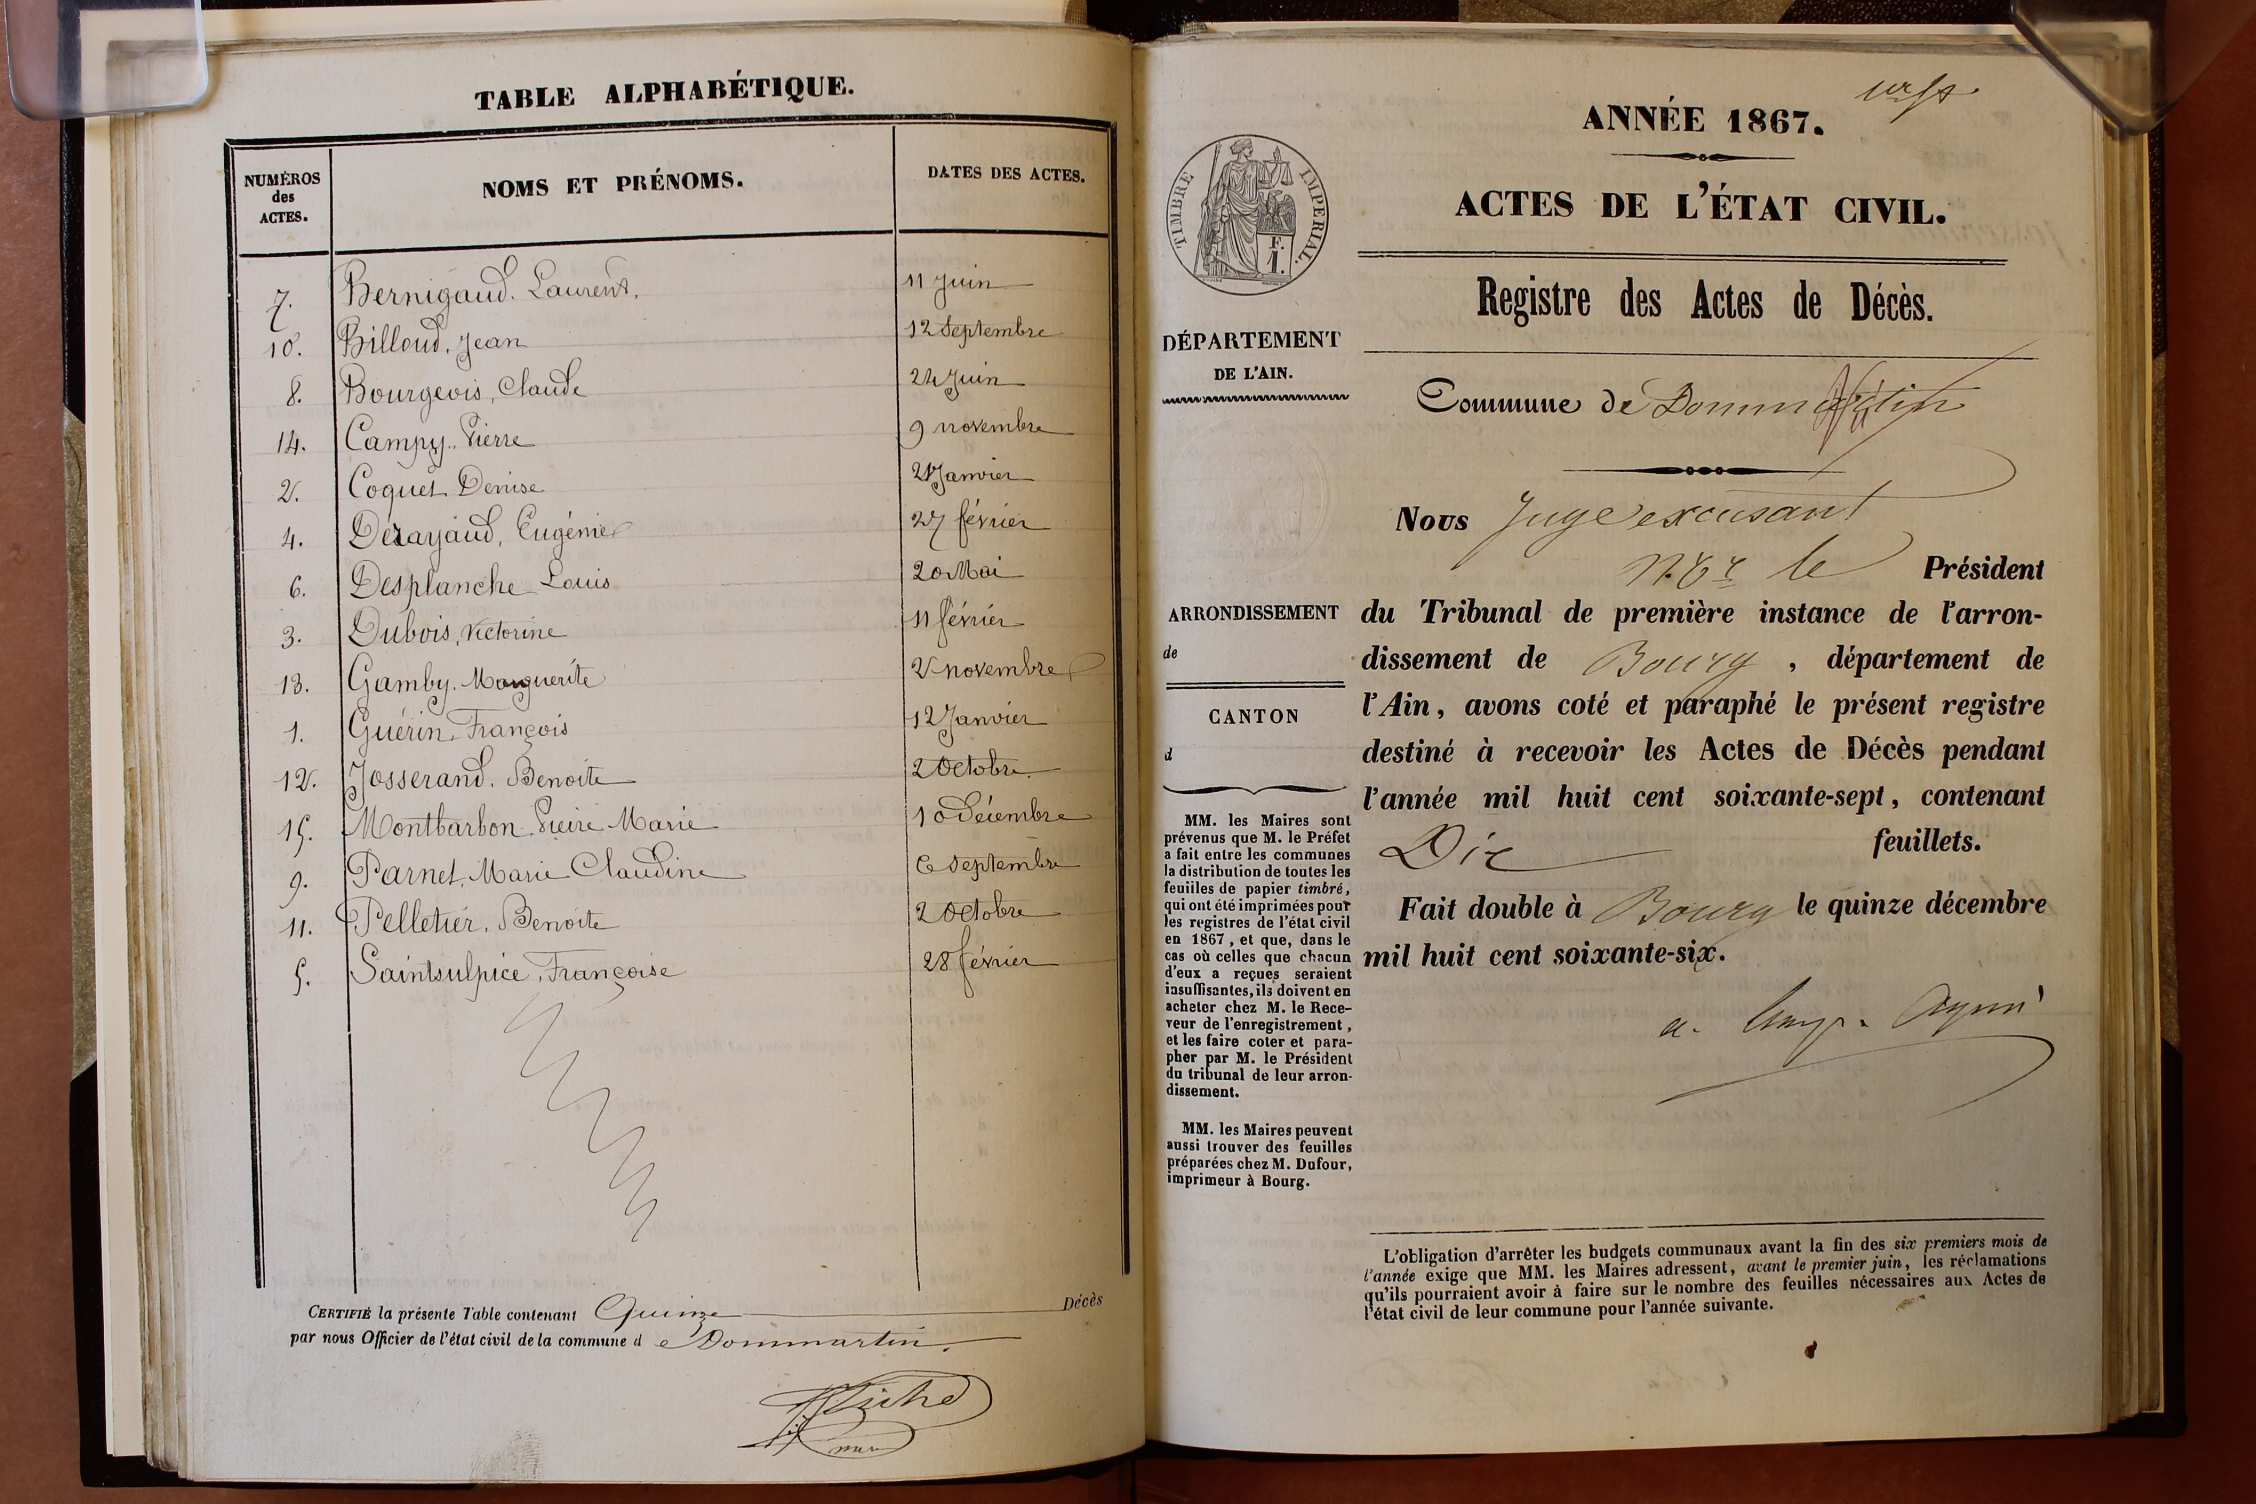 TABLE ALPHABÉTIQUE.
NUMÉROS des ACTES. NOMS ET PRÉNOMS. DATES DES ACTES.
7. Bernigaud. Laurent. 11 Juin
10. Billoud, Jean 12 Septembre
8. Bourgeois, Claude 24 Juin
14. Campy. Pierre 9 novembre
2. Coquet Denise 21 Janvier
4. Dérayaud, Eugénie 27 février
6. Desplanche Louis 20 Mai
3. Dubois, Victorine 11 février
13. Gamby. Marguerite 2 novembre
1. Guérin, François 12 Janvier
12. Josserand. Benoite 2 Octobre
15. Montbarbon Pierre Marie 10 Décembre
9. Parnet, Marie Claudine 6 Septembre
11. Pelletier, Benoite 2 Octobre
5. Saintsulpice, Françoise 28 février
CERTIFIÉ la présente Table contenant Quinze Décès
par nous Officier de l'état civil de la commune d e Dommartin.
ANNÉE 1867.
ACTES DE L'ÉTAT CIVIL.
TIMBRE IMPERIAL.
F.
1.
Registre des Actes de Décès.
DÉPARTEMENT
DE L'AIN.
Commune de Dommartin
Nous Juge excusant
le Président
ARRONDISSEMENT
de
CANTON
d
du Tribunal de première instance de l'arron-
dissement de Bourg, département de
l'Ain, avons coté et paraphé le présent registre
destiné à recevoir les Actes de Décès pendant
l'année mil huit cent soixante-sept, contenant
Dix feuillets.
Fait double à Bourg le quinze décembre
mil huit cent soixante-six.
MM. les Maires sont
prévenus que M. le Préfet
a fait entre les communes
la distribution de toutes les
feuilles de papier timbré,
qui ont été imprimées pour
les registres de l'état civil
en 1867, et que, dans le
cas où celles que chacun
d'eux a reçues seraient
insuffisantes, ils doivent en
acheter chez M. le Rece-
veur de l'enregistrement,
et les faire coter et para-
pher par M. le Président
du tribunal de leur arron-
dissement.
MM. les Maires peuvent
aussi trouver des feuilles
préparées chez M. Dufour,
imprimeur à Bourg.
L'obligation d'arrêter les budgets communaux avant la fin des six premiers mois de
l'année exige que MM. les Maires adressent, avant le premier juin, les réclamations
qu'ils pourraient avoir à faire sur le nombre des feuilles nécessaires aux Actes de
l'état civil de leur commune pour l'année suivante.